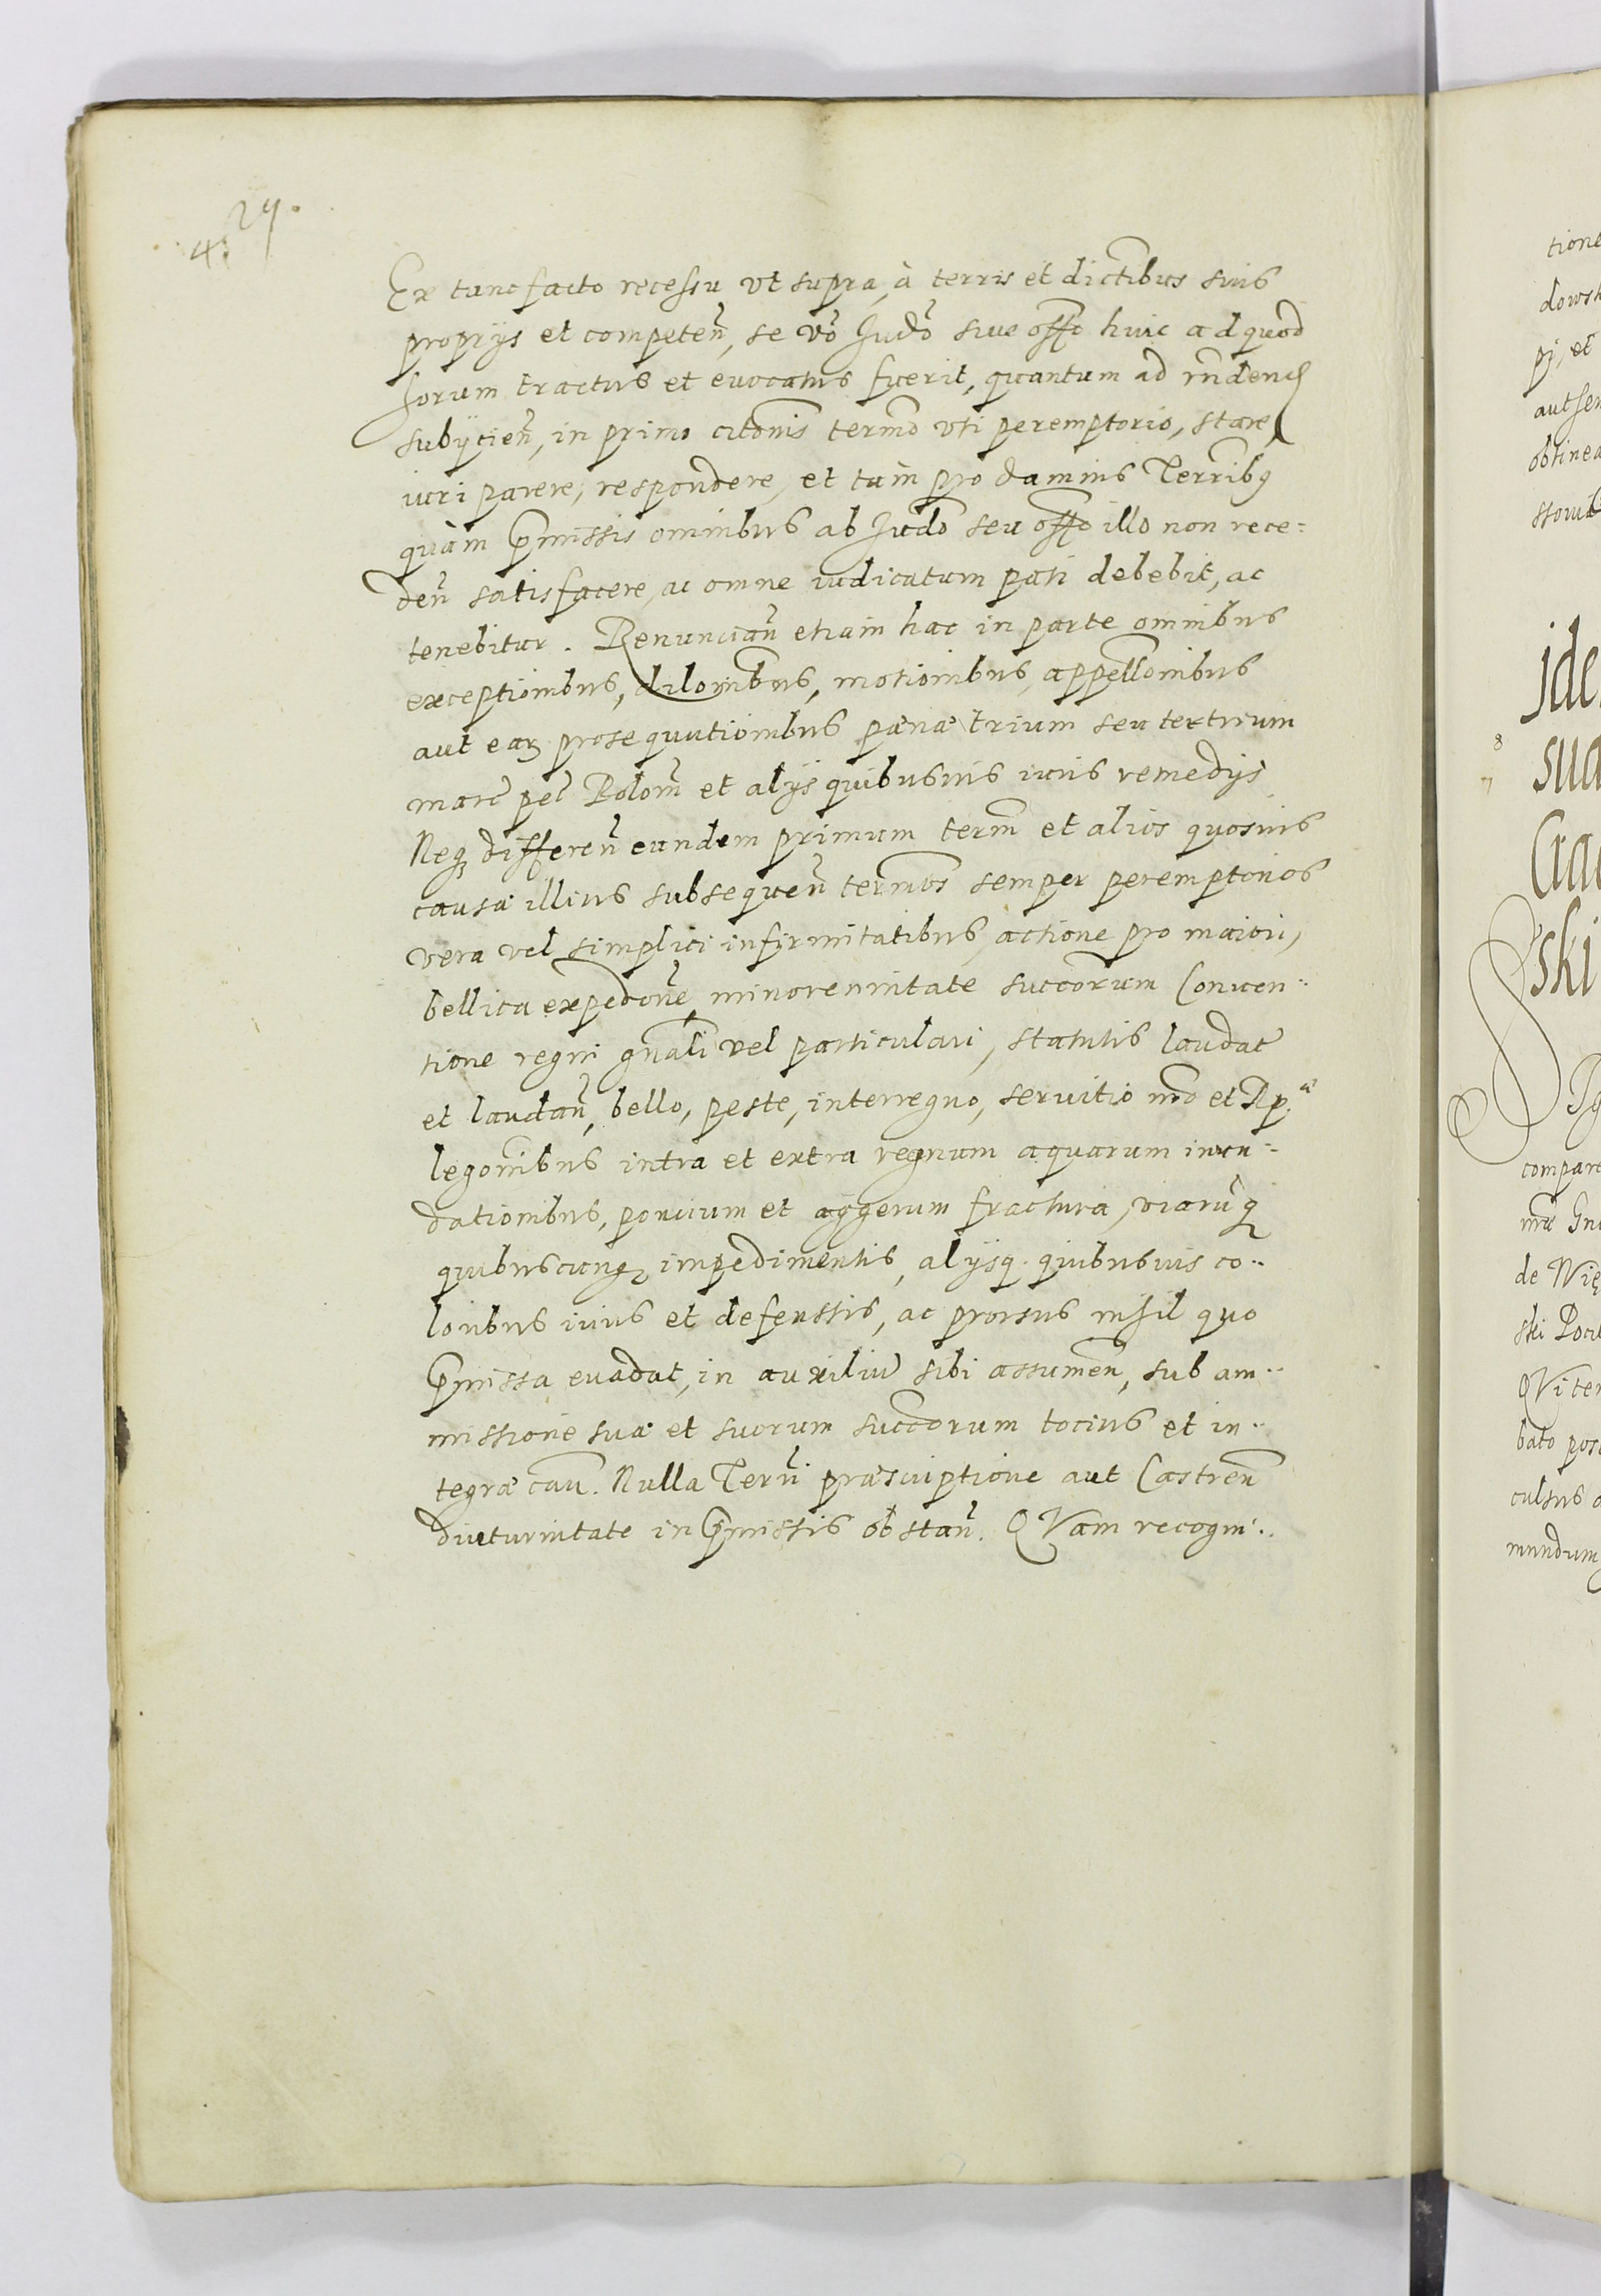 29.
43
Ex tunc facto recessu vt supra, à terris et dictibus suis
proprijs et competen̄, se vō Judō siue offo huic ad quod
forum tractus et euocatus fuerit, quantum ad rn̄dend
subijcien̄, in primo citōnis termō vti peremptorio, stare,
iuri parere, respondere, et tàm pro damnis Terribꝫ
quàm p̄missis omnibus ab Judō seu offo illo non rece:
den̄ satisfacere, ac omne iudicatum pati debebit, ac
tenebitur. Renuncian̄ etiam hac in parte omnibus
exceptionibus, dilōnibus, motionibus, appellōnibus
aut earꝫ prosequutionibus pænæ trium seu ter trium
marc̄ pec̄ Polōm̄ et alijs quibusuis iuris remedijs
Neqꝫ differen̄ eundem primum term̄ et alios quosuis
causæ illius subsequen̄ termōs semper peremptorios
vera vel simplici infirmitatibus, actione pro maiori,
bellica expedōne, minorennitate succōrum Conuen:
tione regni gn̄ali vel particulari, statutis laudat̄
et laudan̄, bello, peste, interregno, seruitio nrō et Rp.ᵃᵉ
legōnibus intra et extra regnum aquarum inun:
dationibus, poncium et aggerum fractura, viarūqꝫ
quibuscunqꝫ impedimentis, alijsqꝫ quibusuis co:
loribus iuris et defenssis, ac prorsus nihil quo
p̄missa euadat, in auxiliū sibi assumen̄, sub am:
missione suæ et suorum succōrum tocius et in:
tegræ cau̅. Nulla Terrn̄ præscriptione aut Castren̄
diuturnitate in p̄missis obstan̄. QVam recogni: